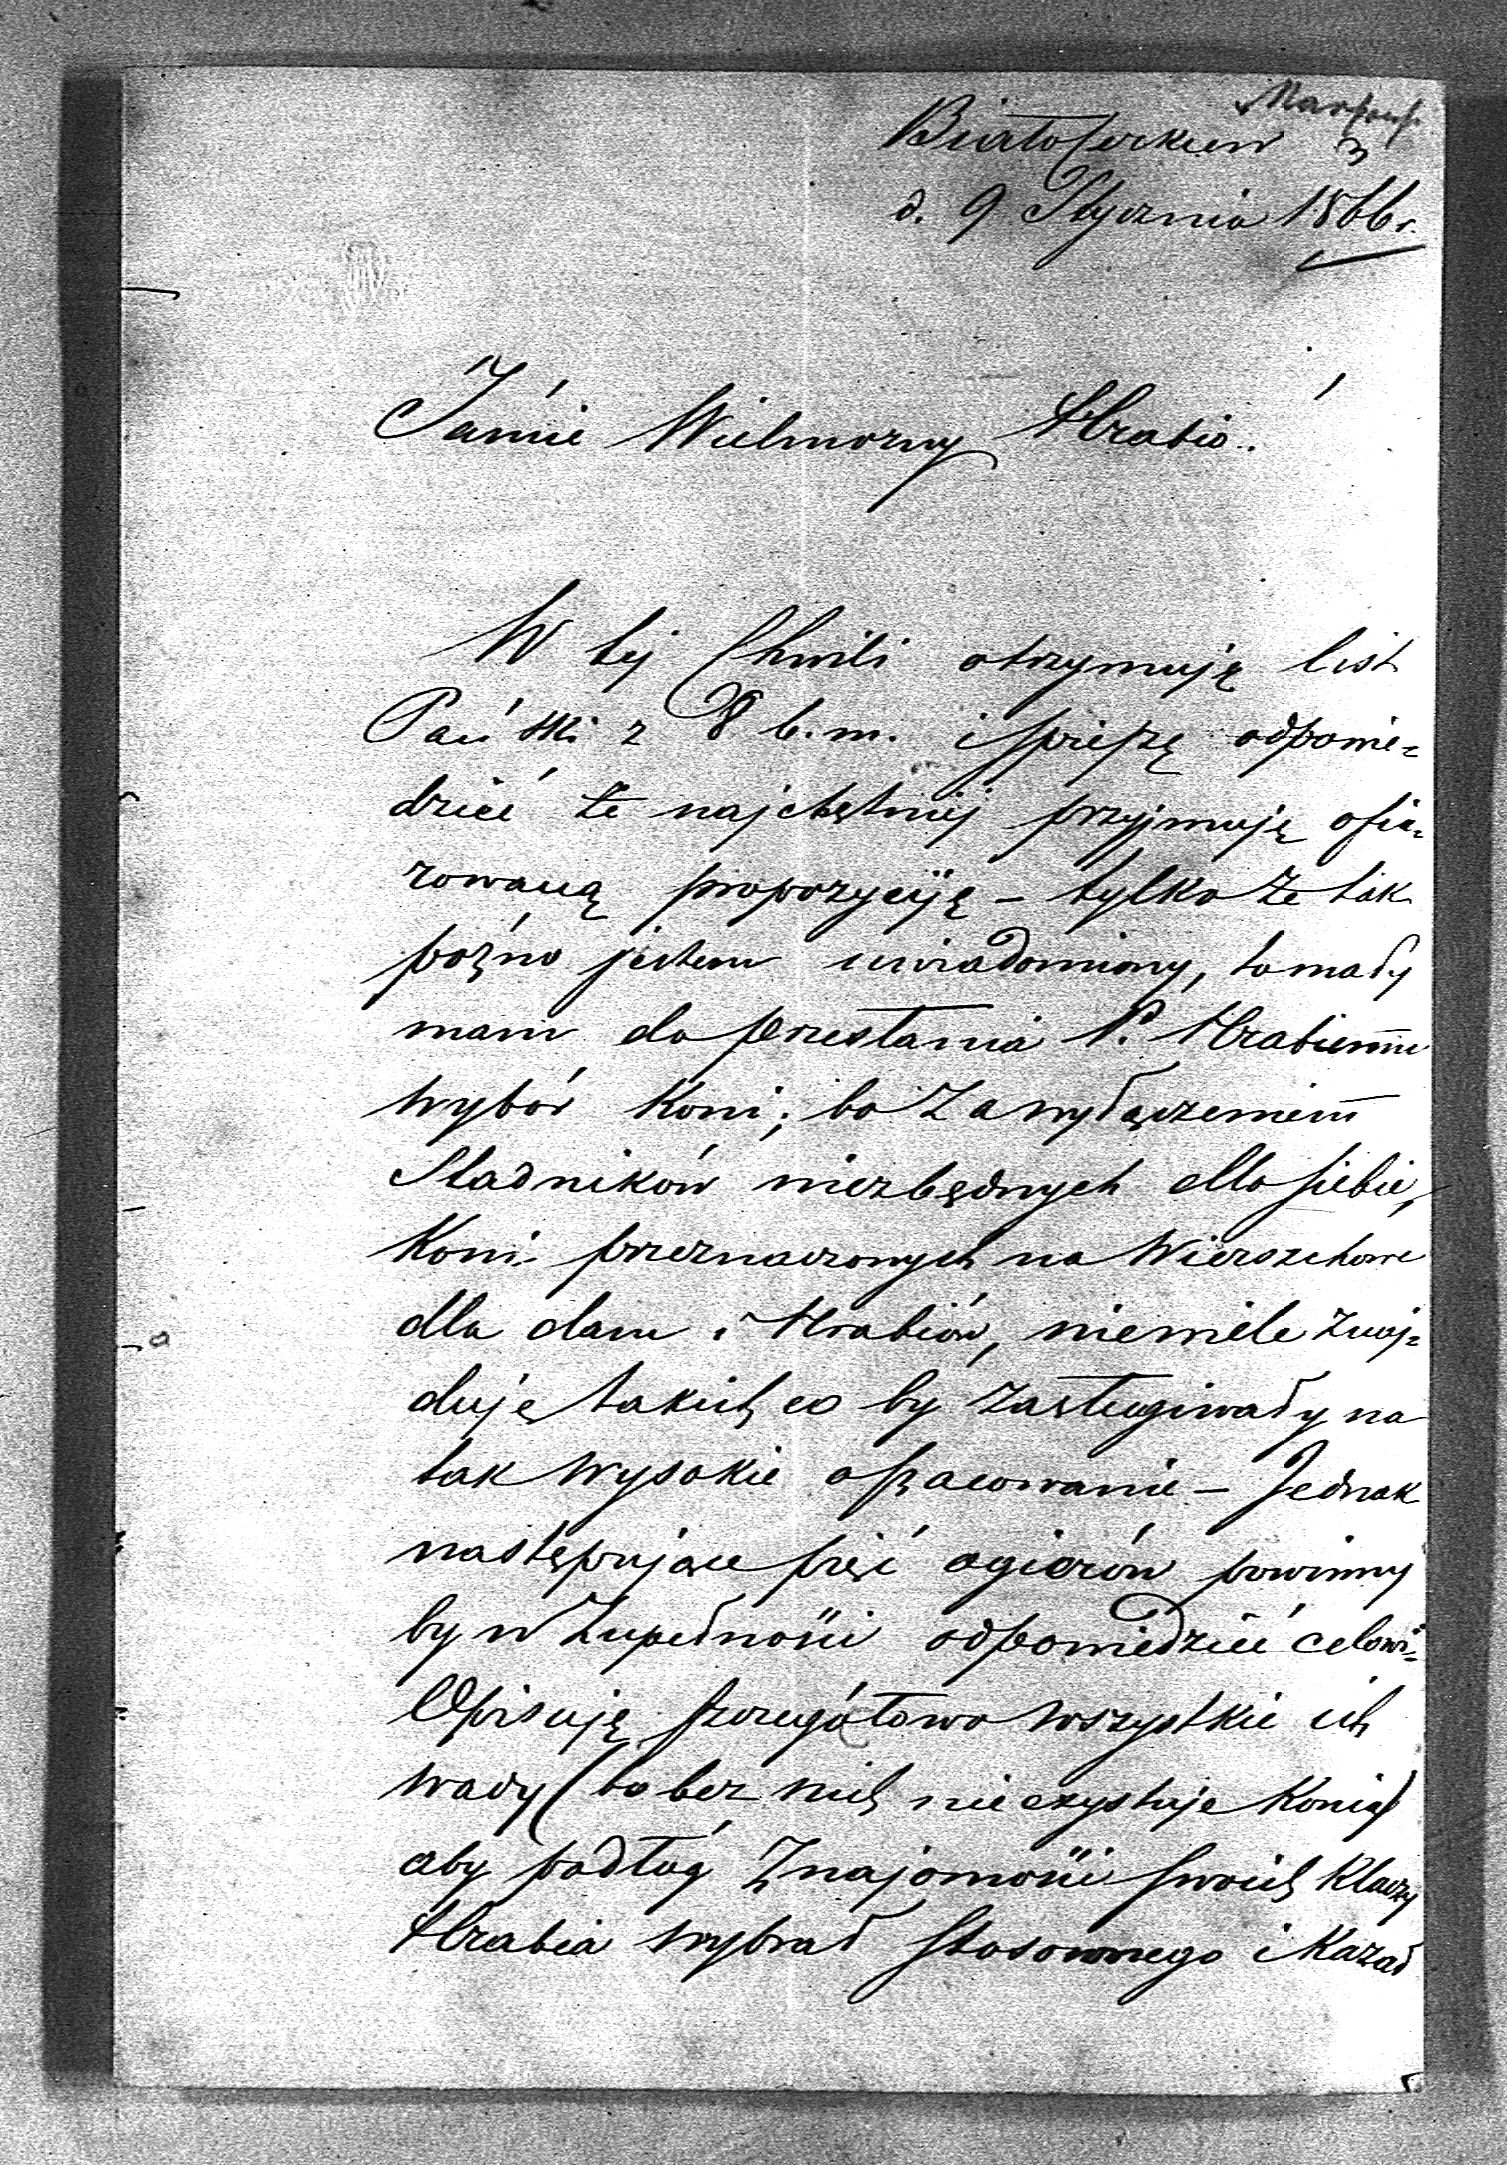 Białocerkiew 3
d. 9 Stycznia 1866 r.
Jaśnie Wielmożny Hrabio!
W tej Chwili otrzymuję list
Pański z 8 b.m. i spieszę odpowie=
dzieć że najchętniej przyjmuję ofia=
rowaną propozycyję - tylko że tak
poźno jestem uwiadomiony, to mały
mam do przesłania P. Hrabiemu
wybór Koni; bo za wyłączeniem
Stadników niezbędnych dla siebie,
Koni przeznaczonych na Wierszchowe
dla dam i Hrabiów, niewiele znaj=
duję takich co by zasługiwały na
tak wysokie opracowanie - Jednak
następujące pięć ogierów powinny
by w Zupełności odpowiedzieć celowi=
Opisuję szczegółowo wszystkie ich
wady (bo bez nich nie exystuje Konia)
aby podług Znajomości swoich Klaczy
Hrabia wybrał stosownego i Kazał